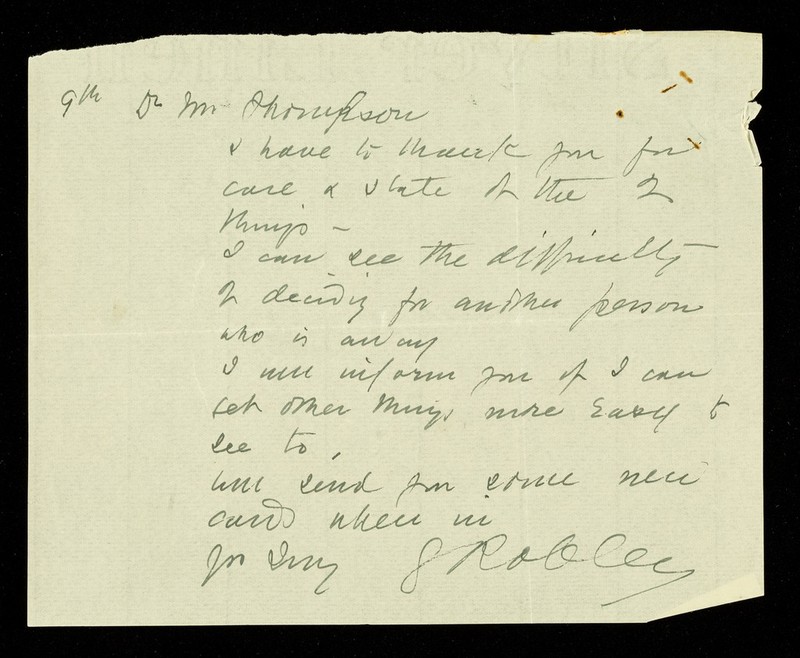 9th Dr Mr Thompson
I have to thank you for
care & state of the 2
things –
I can see the difficulty
of deciding for another person
who is away
I will inform you if I can
get other things more easy to
see to,
will send you some new
cards when in
yrs Sincy G Robley